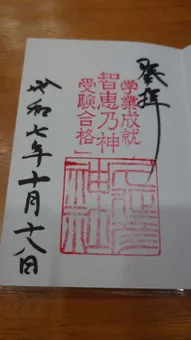 奉拝
学業成就
智恵乃神
受験合格
令和七年十月十八日